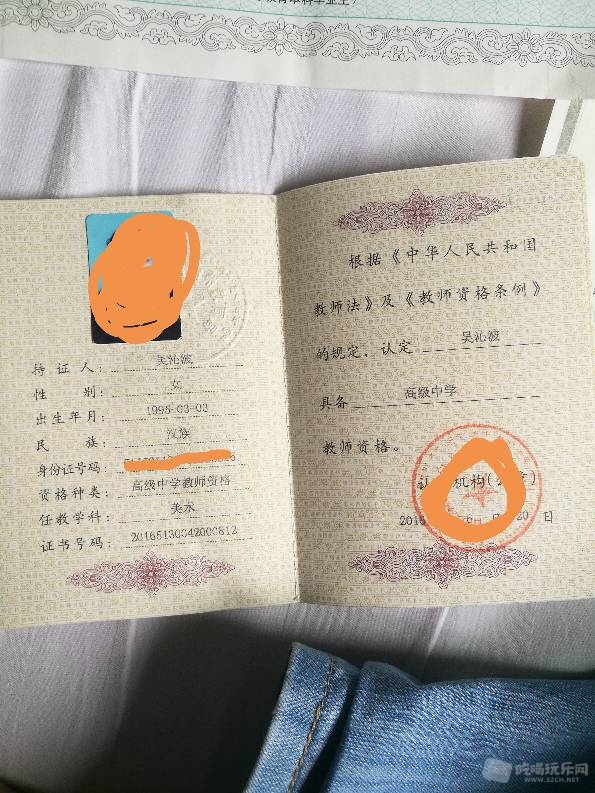 持 证 人： 吴沁波
性 别： 女
出生年月： 1995-03-03
民 族： 汉族
身份证号码：
资格种类： 高级中学教师资格
任教学科： 美术
证书号码： 20165130042000812
根据《中华人民共和国
教师法》及《教师资格条例》
的规定，认定 吴沁波
具备 高级中学
教师资格。
机构(
2016
20 日
吃喝玩乐网
WWW.52CH.NET